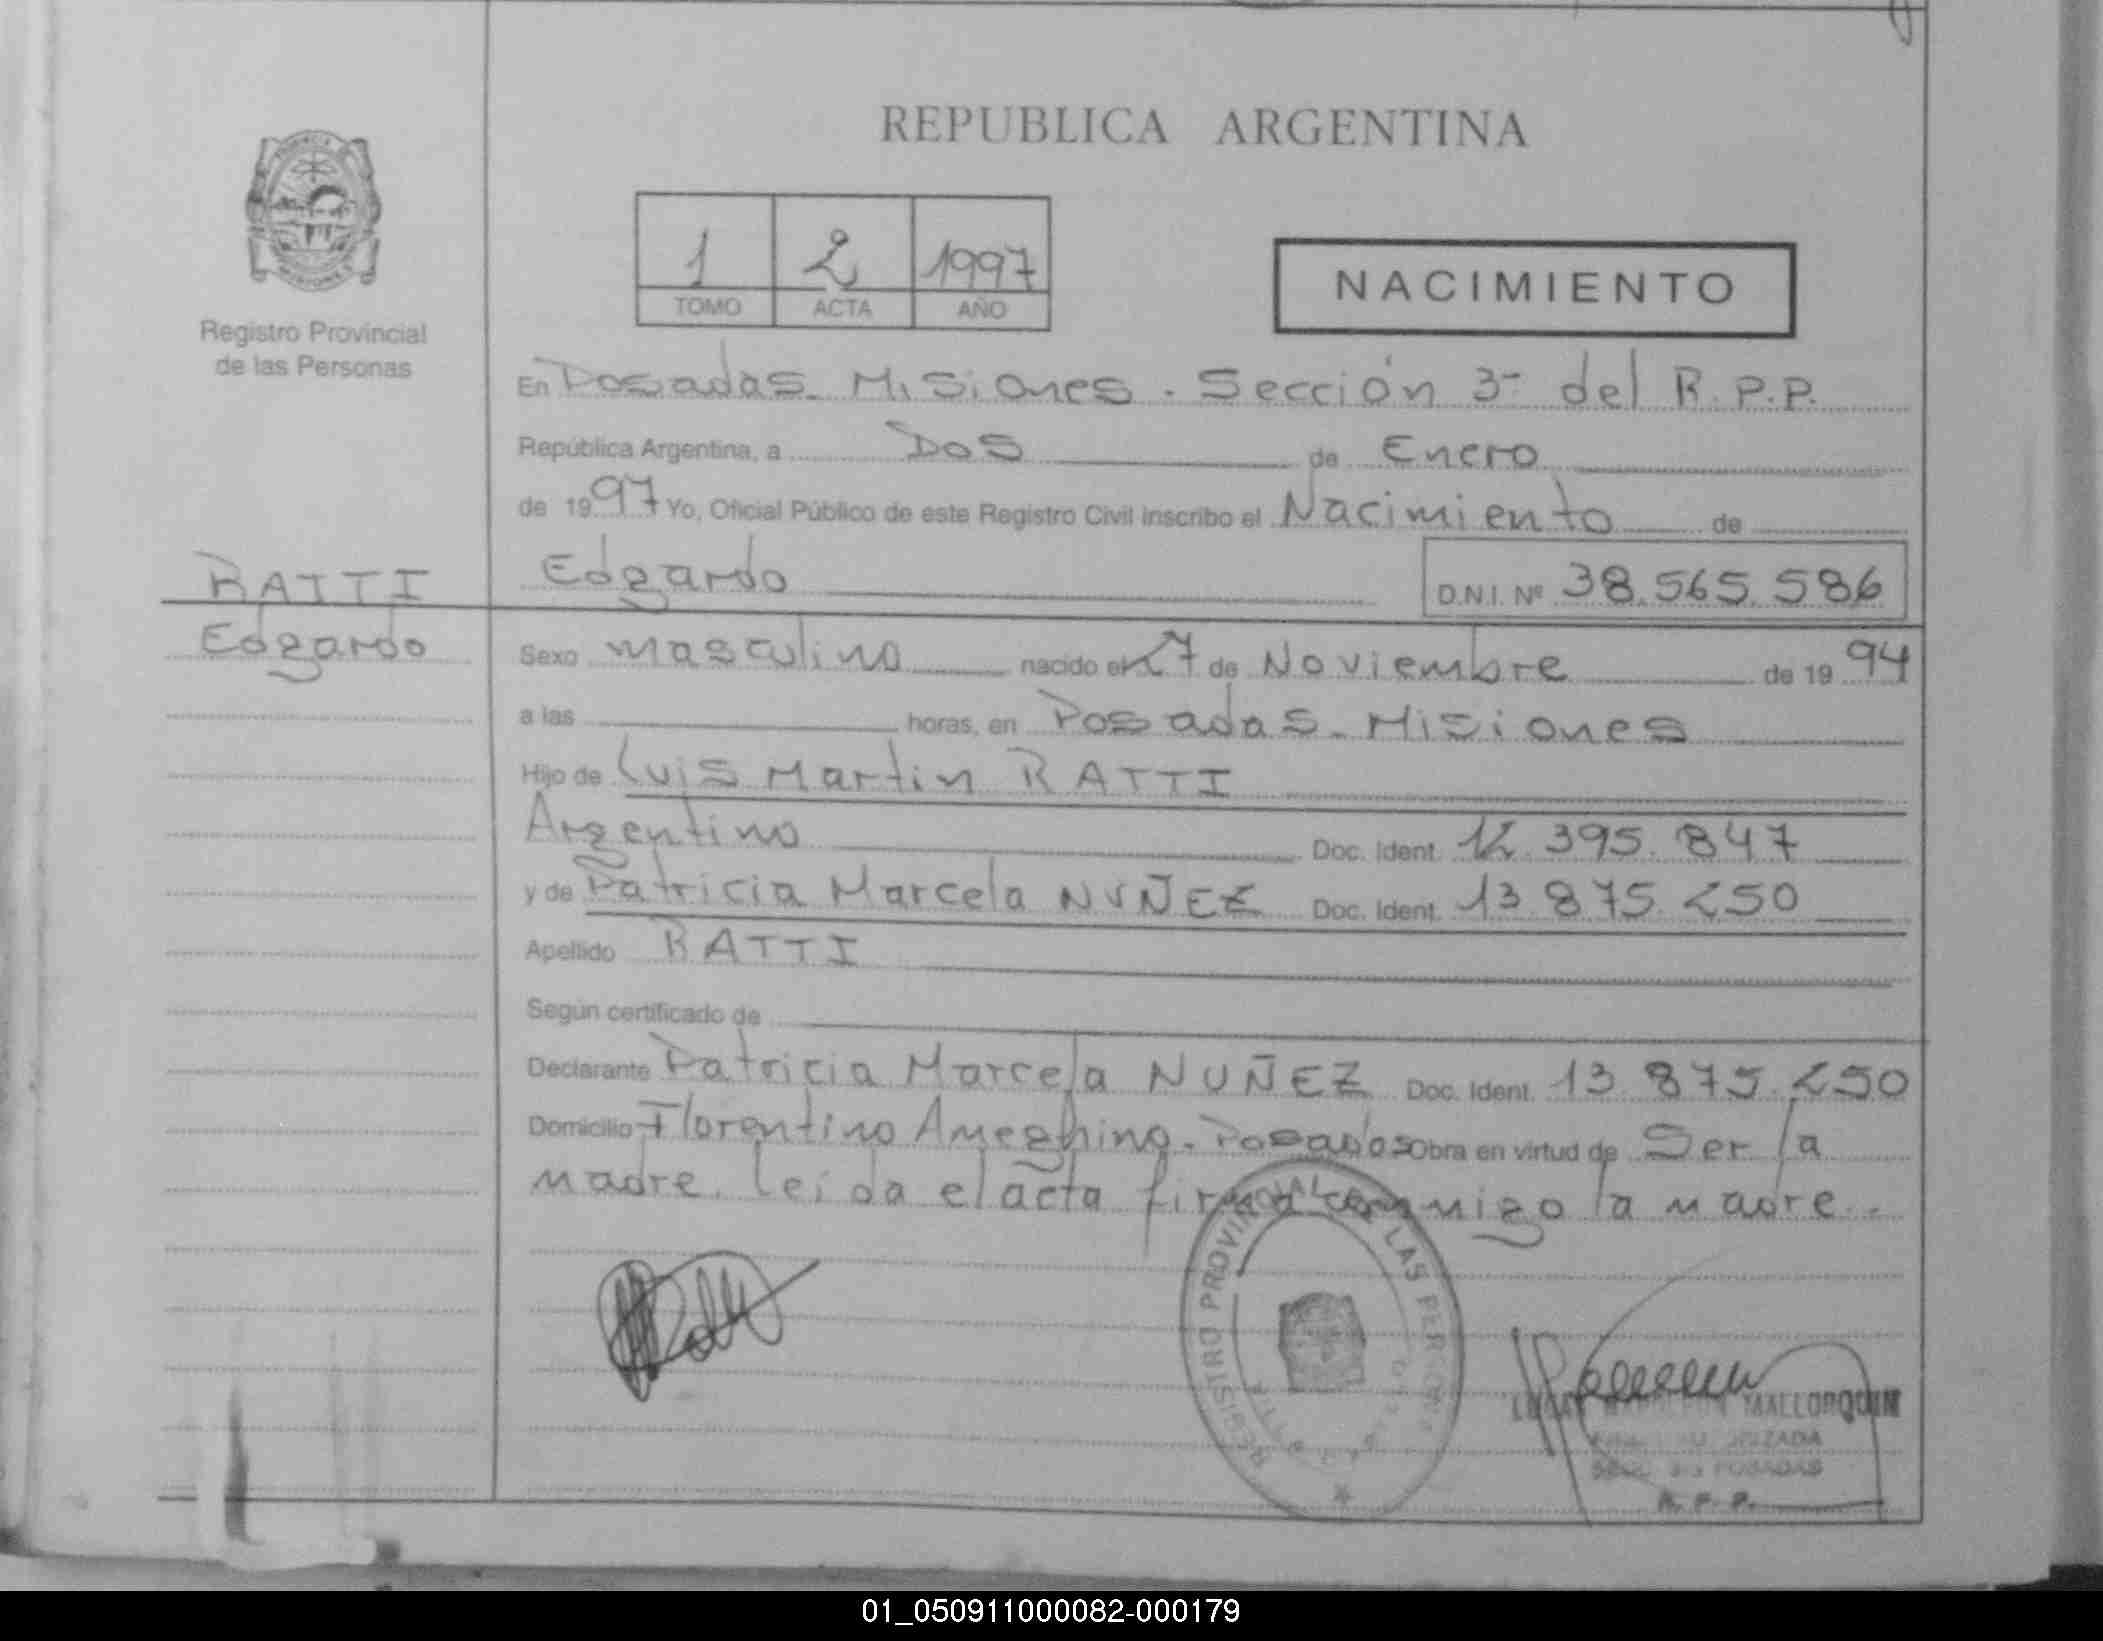 REPUBLICA ARGENTINA
1 2 1997
TOMO ACTA AÑO
NACIMIENTO
Registro Provincial
de las Personas
En Posadas - Misiones - Sección 3- del R.P.P.
República Argentina, a Dos de Enero
de 1997 Yo, Oficial Público de este Registro Civil inscribo el Nacimiento de
RATTI
Edgardo
Edgardo
D.N.I. Nº 38.565.586
Sexo masculino nacido el 27 de Noviembre de 1994
a las horas, en Posadas - Misiones
Hijo de Luis Martin RATTI
Argentino Doc. Ident. 12.395.847
y de Patricia Marcela NUÑEZ Doc. Ident. 13.875.250
Apellido RATTI
Según certificado de
Declarante Patricia Marcela NUÑEZ Doc. Ident. 13.875.250
Domicilio Florentino Ameghino - Posadas Obra en virtud de Ser la
madre. leida el acta firma conmigo la madre.-
REGISTRO PROVINCIAL DE LAS PERSONAS
MALLORQUIN
POSADAS
R. P. P.
01_050911000082-000179